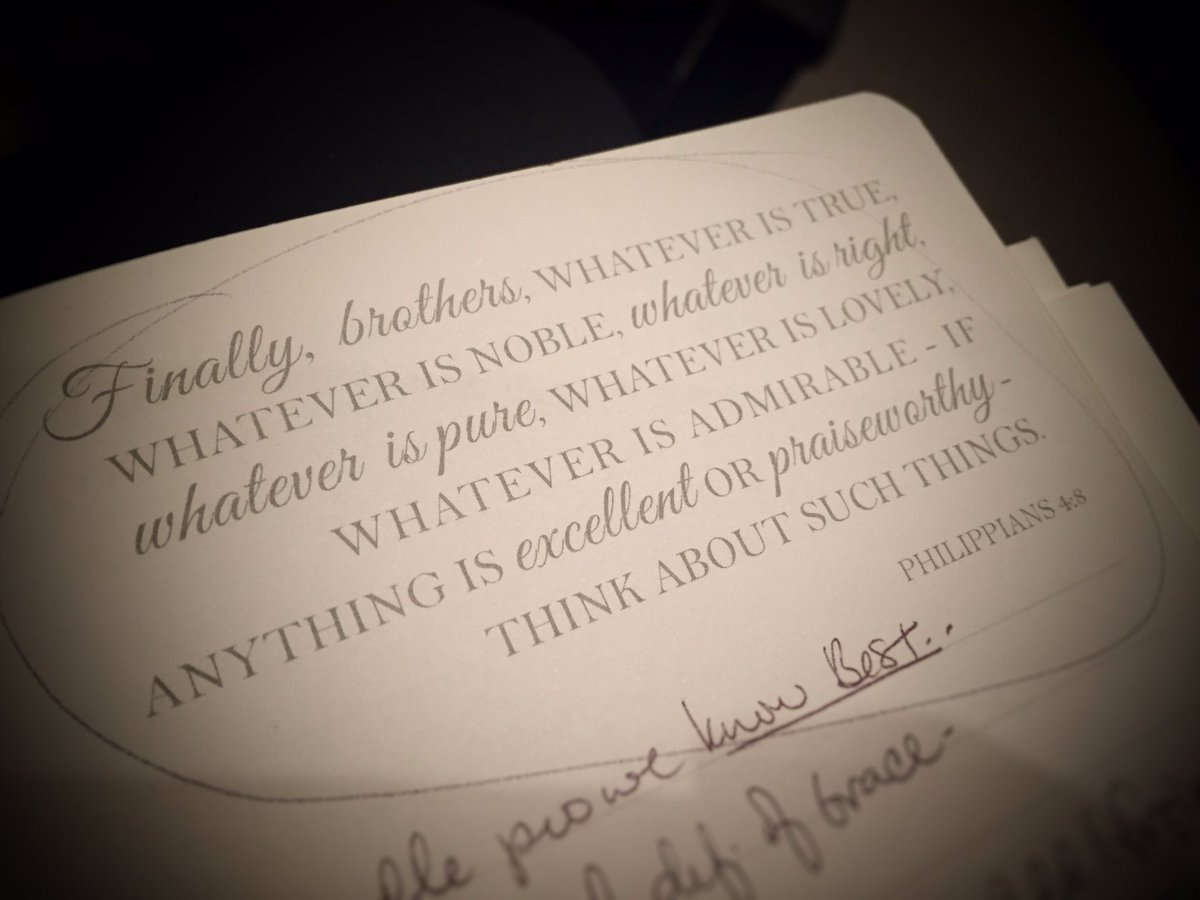 Finally, brothers, WHATEVER IS TRUE,
WHATEVER IS NOBLE, whatever is right,
whatever is pure, WHATEVER IS LOVELY,
WHATEVER IS ADMIRABLE - IF
ANYTHING IS excellent OR praiseworthy -
THINK ABOUT SUCH THINGS.
PHILIPPIANS 4:8
know Best..
def. of Grace -